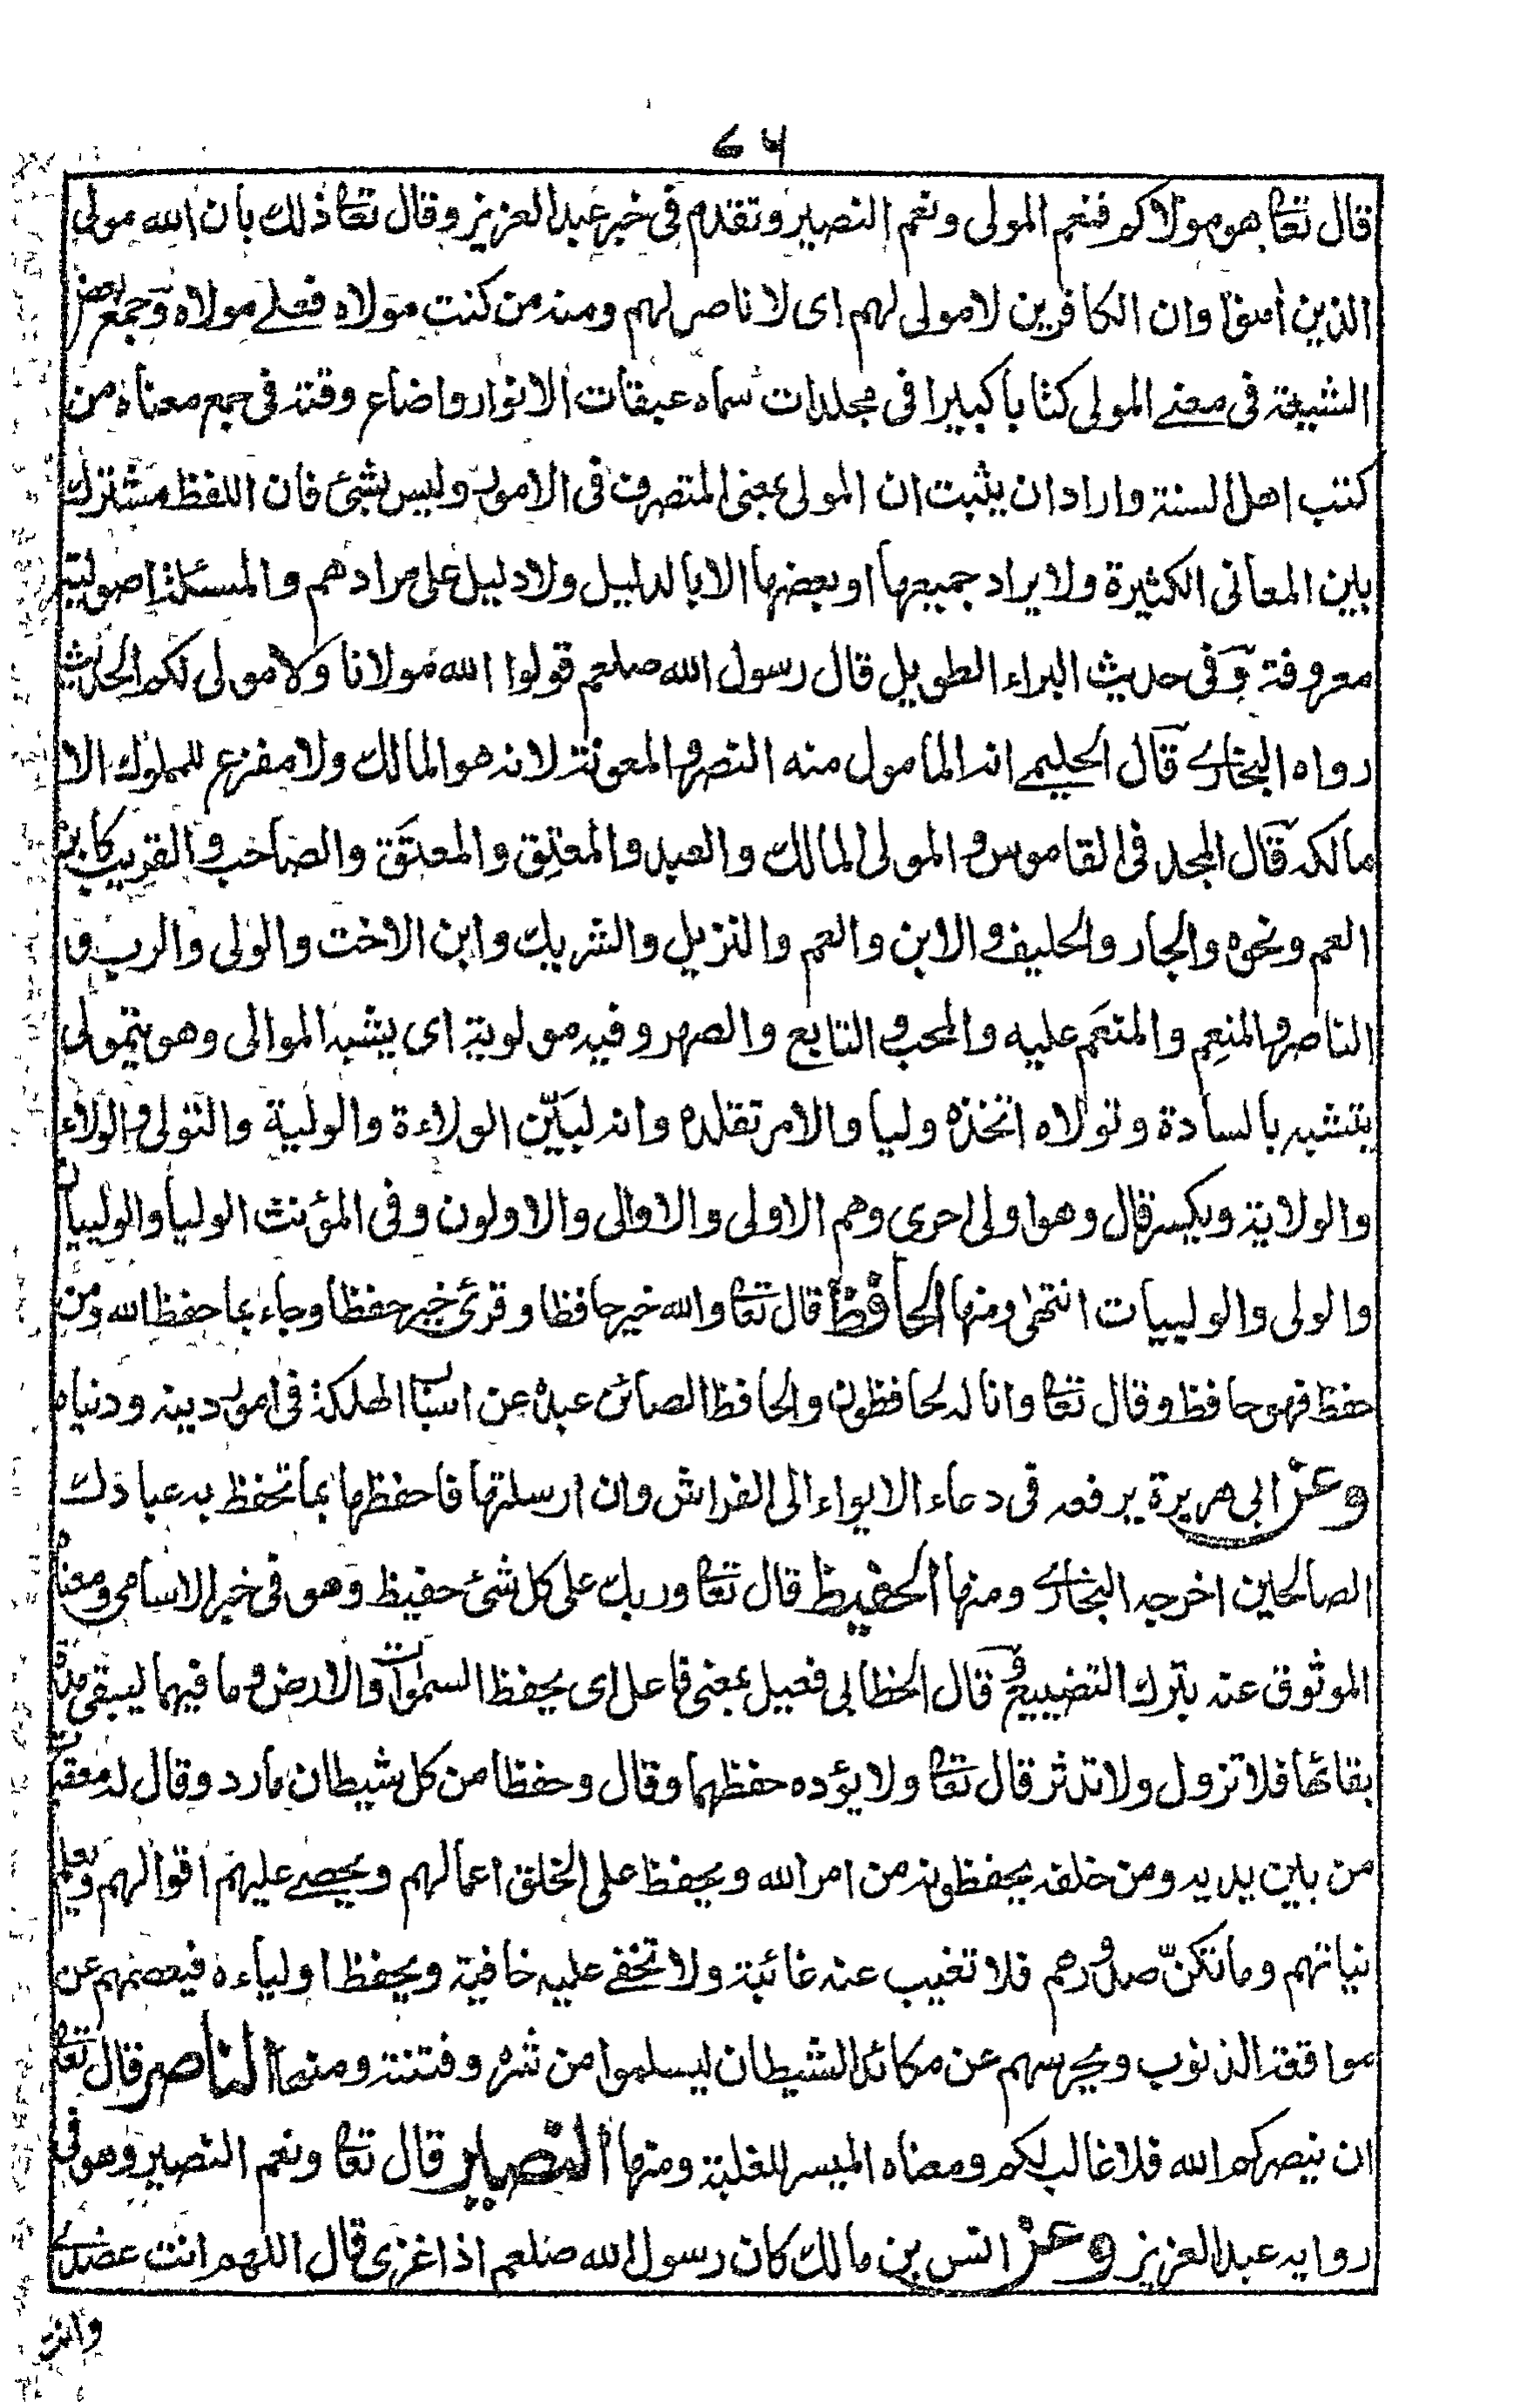 ٦٧
قال تعالى هو مولاكم فنعم المولى ونعم النصير وتقدم فى خبر عبد العزيز وقال تعالى ذلك بان الله مولى
الذين امنوا وان الكافرين لا مولى لهم اى لا ناصر لهم ومنه من كنت مولاه فعلي مولاه وجمع بعض
الشيعة فى معنى المولى كتابا كبيرا فى مجلدات سماه عبقات الانوار واضاع وقته فى جمع معناه من
كتب اهل السنة واراد ان يثبت ان المولى بمعنى المتصرف فى الامور وليس بشئ فان اللفظ مشترك
بين المعانى الكثيرة ولا يراد جميعها او بعضها الا بالدليل ولا دليل على مرادهم والمسئلة اصولية
معروفة وفى حديث البراء الطويل قال رسول الله صلعم قولوا الله مولانا ولا مولى لكم الحديث
رواه البخارى قال الحليمى انه المامول منه النصر والمعونة لانه هو المالك ولا مفزع للمملوك الا
مالكه قال المجد فى القاموس و المولى المالك والعبد والمعتِق والمعتَق والصاحب والقريب كابن
العم ونحوه والجار والحليف والابن والعم والنزيل والشريك وابن الاخت والولى والرب و
الناصر والمنعِم والمنعَم عليه والمحب والتابع والصهر وفيه مولوية اى يشبه الموالى وهو يتمولى
يتشبه بالسادة وتولاه اتخذه وليا والامر تقلده وانه لبيّن الولاءة والولية والتولى والولاء
والولاية ويكسر قال وهو اولى احرى وهم الاولى والاوالى والاولون وفى المؤنث الوليا والولييان
والولى والولييات انتهى ومنها الحافظ قال تعالى والله خير حافظا وقرئ خير حفظا وجاء بما حفظ الله ومن
حفظ فهو حافظ وقال تعالى وانا له لحافظون والحافظ الصائن عبده عن اسباب الهلكة فى امور دينه ودنياه
وعن ابى هريرة يرفعه فى دعاء الايواء الى الفراش وان ارسلتها فاحفظها بما تحفظ به عبادك
الصالحين اخرجه البخارى ومنها الحفيظ قال تعالى وربك على كل شئ حفيظ وهو فى خبر الاسامى ومعناه
الموثوق عنه بترك التضييع و قال الخطابى فعيل بمعنى فاعل اى يحفظ السموات والارض وما فيهما ليبقى مدة
بقائها فلا تزول ولا تدثر قال تعالى ولا يؤده حفظهما وقال وحفظا من كل شيطان مارد وقال له معقبات
من بين يديه ومن خلفه يحفظونه من امر الله ويحفظ على الخلق اعمالهم ويحصى عليهم اقوالهم ويعلم
نياتهم وما تكنّ صدورهم فلا تغيب عنه غائبة ولا تخفى عليه خافية ويحفظ اولياءه فيعصمهم عن
مواقفة الذنوب ويحرسهم عن مكائد الشيطان ليسلموا من شره وفتنته ومنها الناصر قال تعالى
ان ينصركم الله فلا غالب لكم ومعناه الميسر للغلبة ومنها النصير قال تعالى ونعم النصير وهو فى
رواية عبد العزيز وعن انس بن مالك كان رسول الله صلعم اذا غزى قال اللهم انت عضدى
وانت